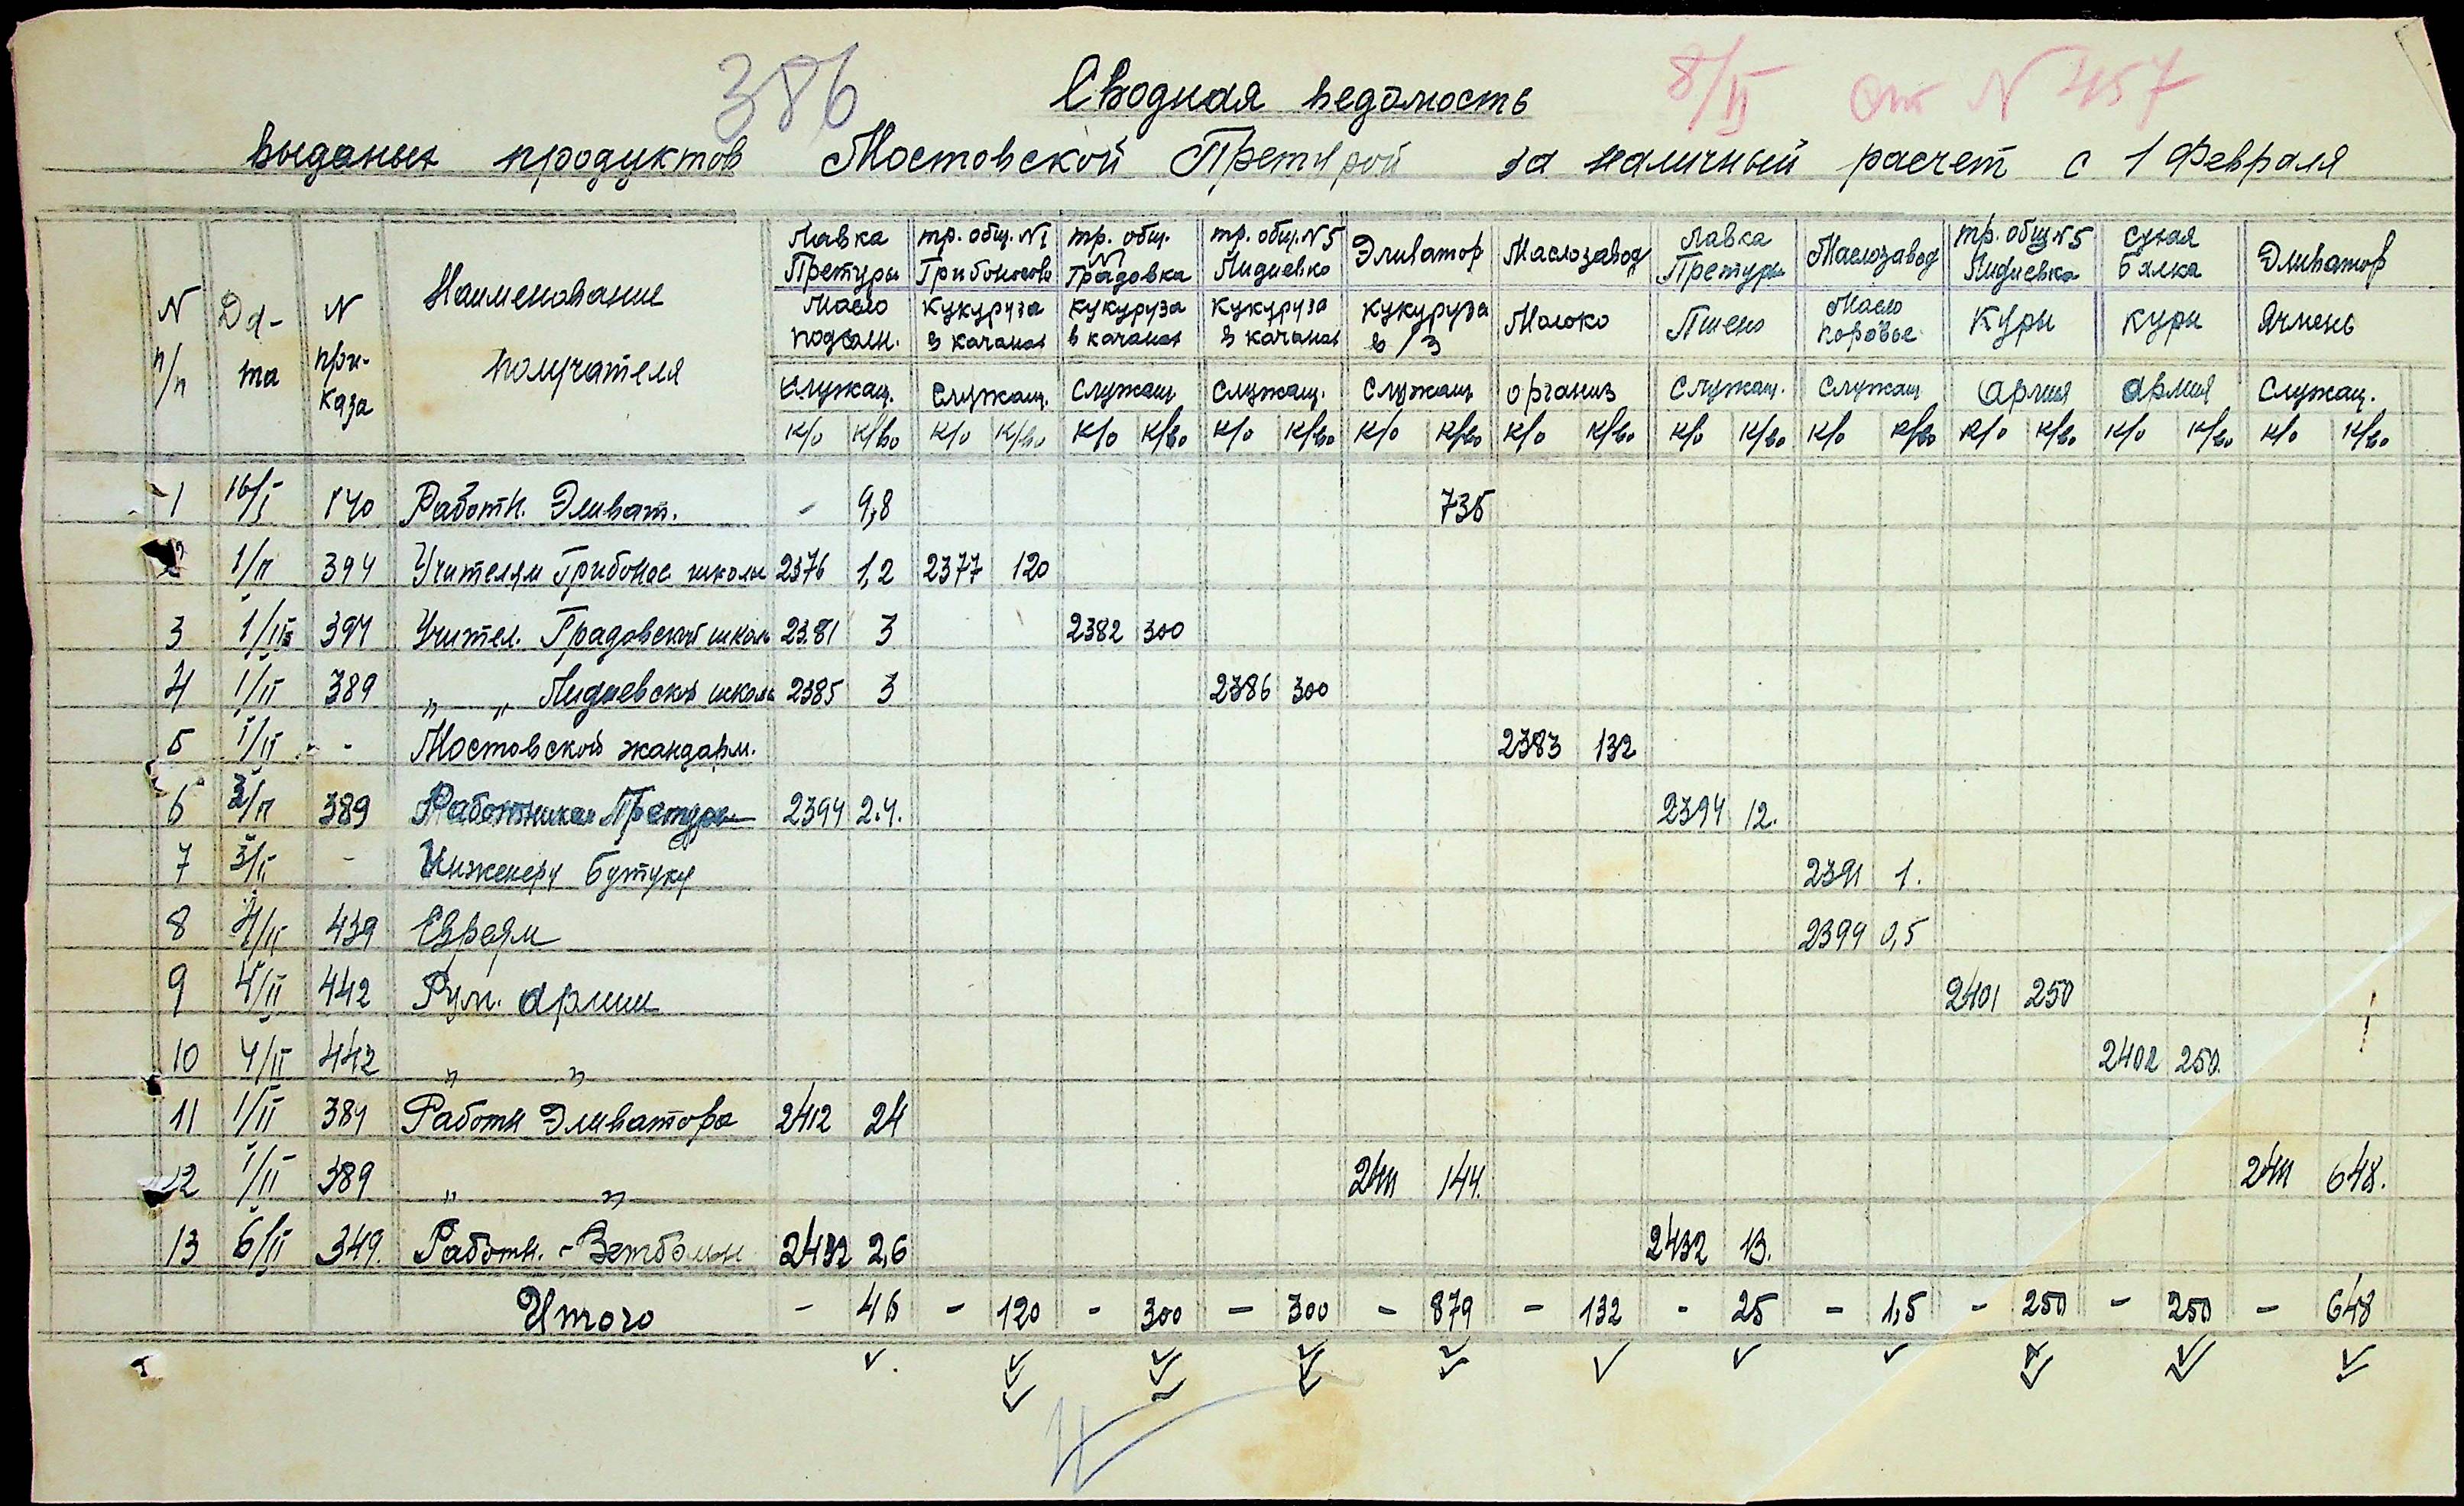 386
Сводная ведомость
8/II от N 457
выданых продуктов Мостовской Претурой за наличный расчет с 1 Февраля
N п/п Да-та N при-каза Наименование получателя
Лавка Претуры тр. общ. N1 тр. общ. Градовка тр. общ. N5 Лидиевка Эливатор Маслозавод Лавка Претуры Маслозавод тр. общ N5 Лидиевка Сухая Балка Эливатор
Масло подсолн. Кукуруза в качанах Кукуруза в качанах Кукуруза в качанах Кукуруза в/з Молоко Пшено Масло коровье Куры Куры Ячмень
Служащ. Служащ. Служащ Служащ. Служащ организ Служащ. Служащ армия армия Служащ.
к/о к/во к/о к/во к/о к/во к/о к/во к/о к/во к/о к/во к/о к/во к/о к/во к/о к/во к/о к/во к/о к/во
1 16/I 140 Работн. Эливат. - 9,8 735
2 1/II 394 Учителям Грибонос школы 2376 1,2 2377 120
3 1/II 394 Учител. Градовской школы 2381 3 2382 300
4 1/II 389 " " Лидиевской школы 2385 3 2386 300
5 1/II - Мостовской жандарм. 2383 132
6 3/II 389 Работникам Претуры 2394 2.4. 2394 12.
7 3/II - Инженеру Бутуку 2391 1.
8 4/II 439 Евреям 2399 0,5
9 4/II 442 Рум. армии 2401 250
10 4/II 442 " " 2402 250.
11 1/II 389 Работн Эливатора 2412 24
12 1/II 389 " " 2411 144. 2411 648.
13 6/II 349. Работн. - Ветбольн 2432 2,6 2432 13.
Итого - 46 - 120 - 300 - 300 - 879 - 132 - 25 - 1,5 - 250 - 250 - 648